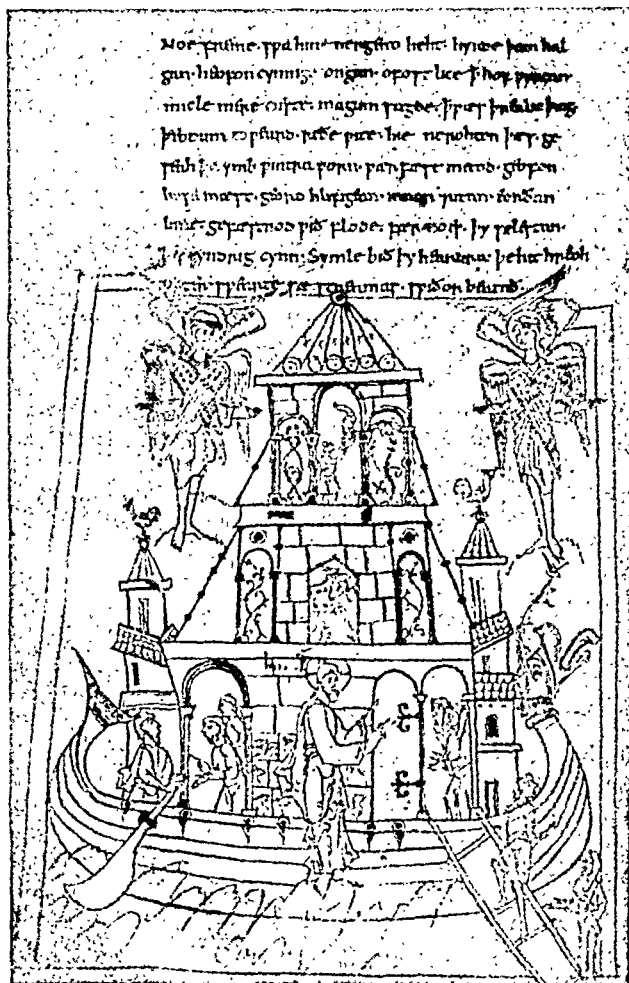 Noe fremede ſƿa hine nergend heht· hyrde þam hal
gan· heofon cyninge· ongan ofoſt lice ꝥ hof ƿyrcan
micle mere cieſte· magum ſægde· ꝥ ƿæſ þrealic þing
þeodum toƿeard· reðe ƿite· hie ne rohton þæſ· ge
ſeah þa ymb ƿintra ƿorn ƿær fæſt metod· geofon
huſa mæſt· gearo hlifigean· innan ⁊ utan eorðan
lime· gefæſtnod ƿið flode· fær noeſ· þy ſeleſtan·
ꝥ iſ ſyndrig cynn· Symle bið þy heardra þe hit hreoh
ƿæter ſƿearte ſæ ſtreamaſ· ſƿiðor beatað·